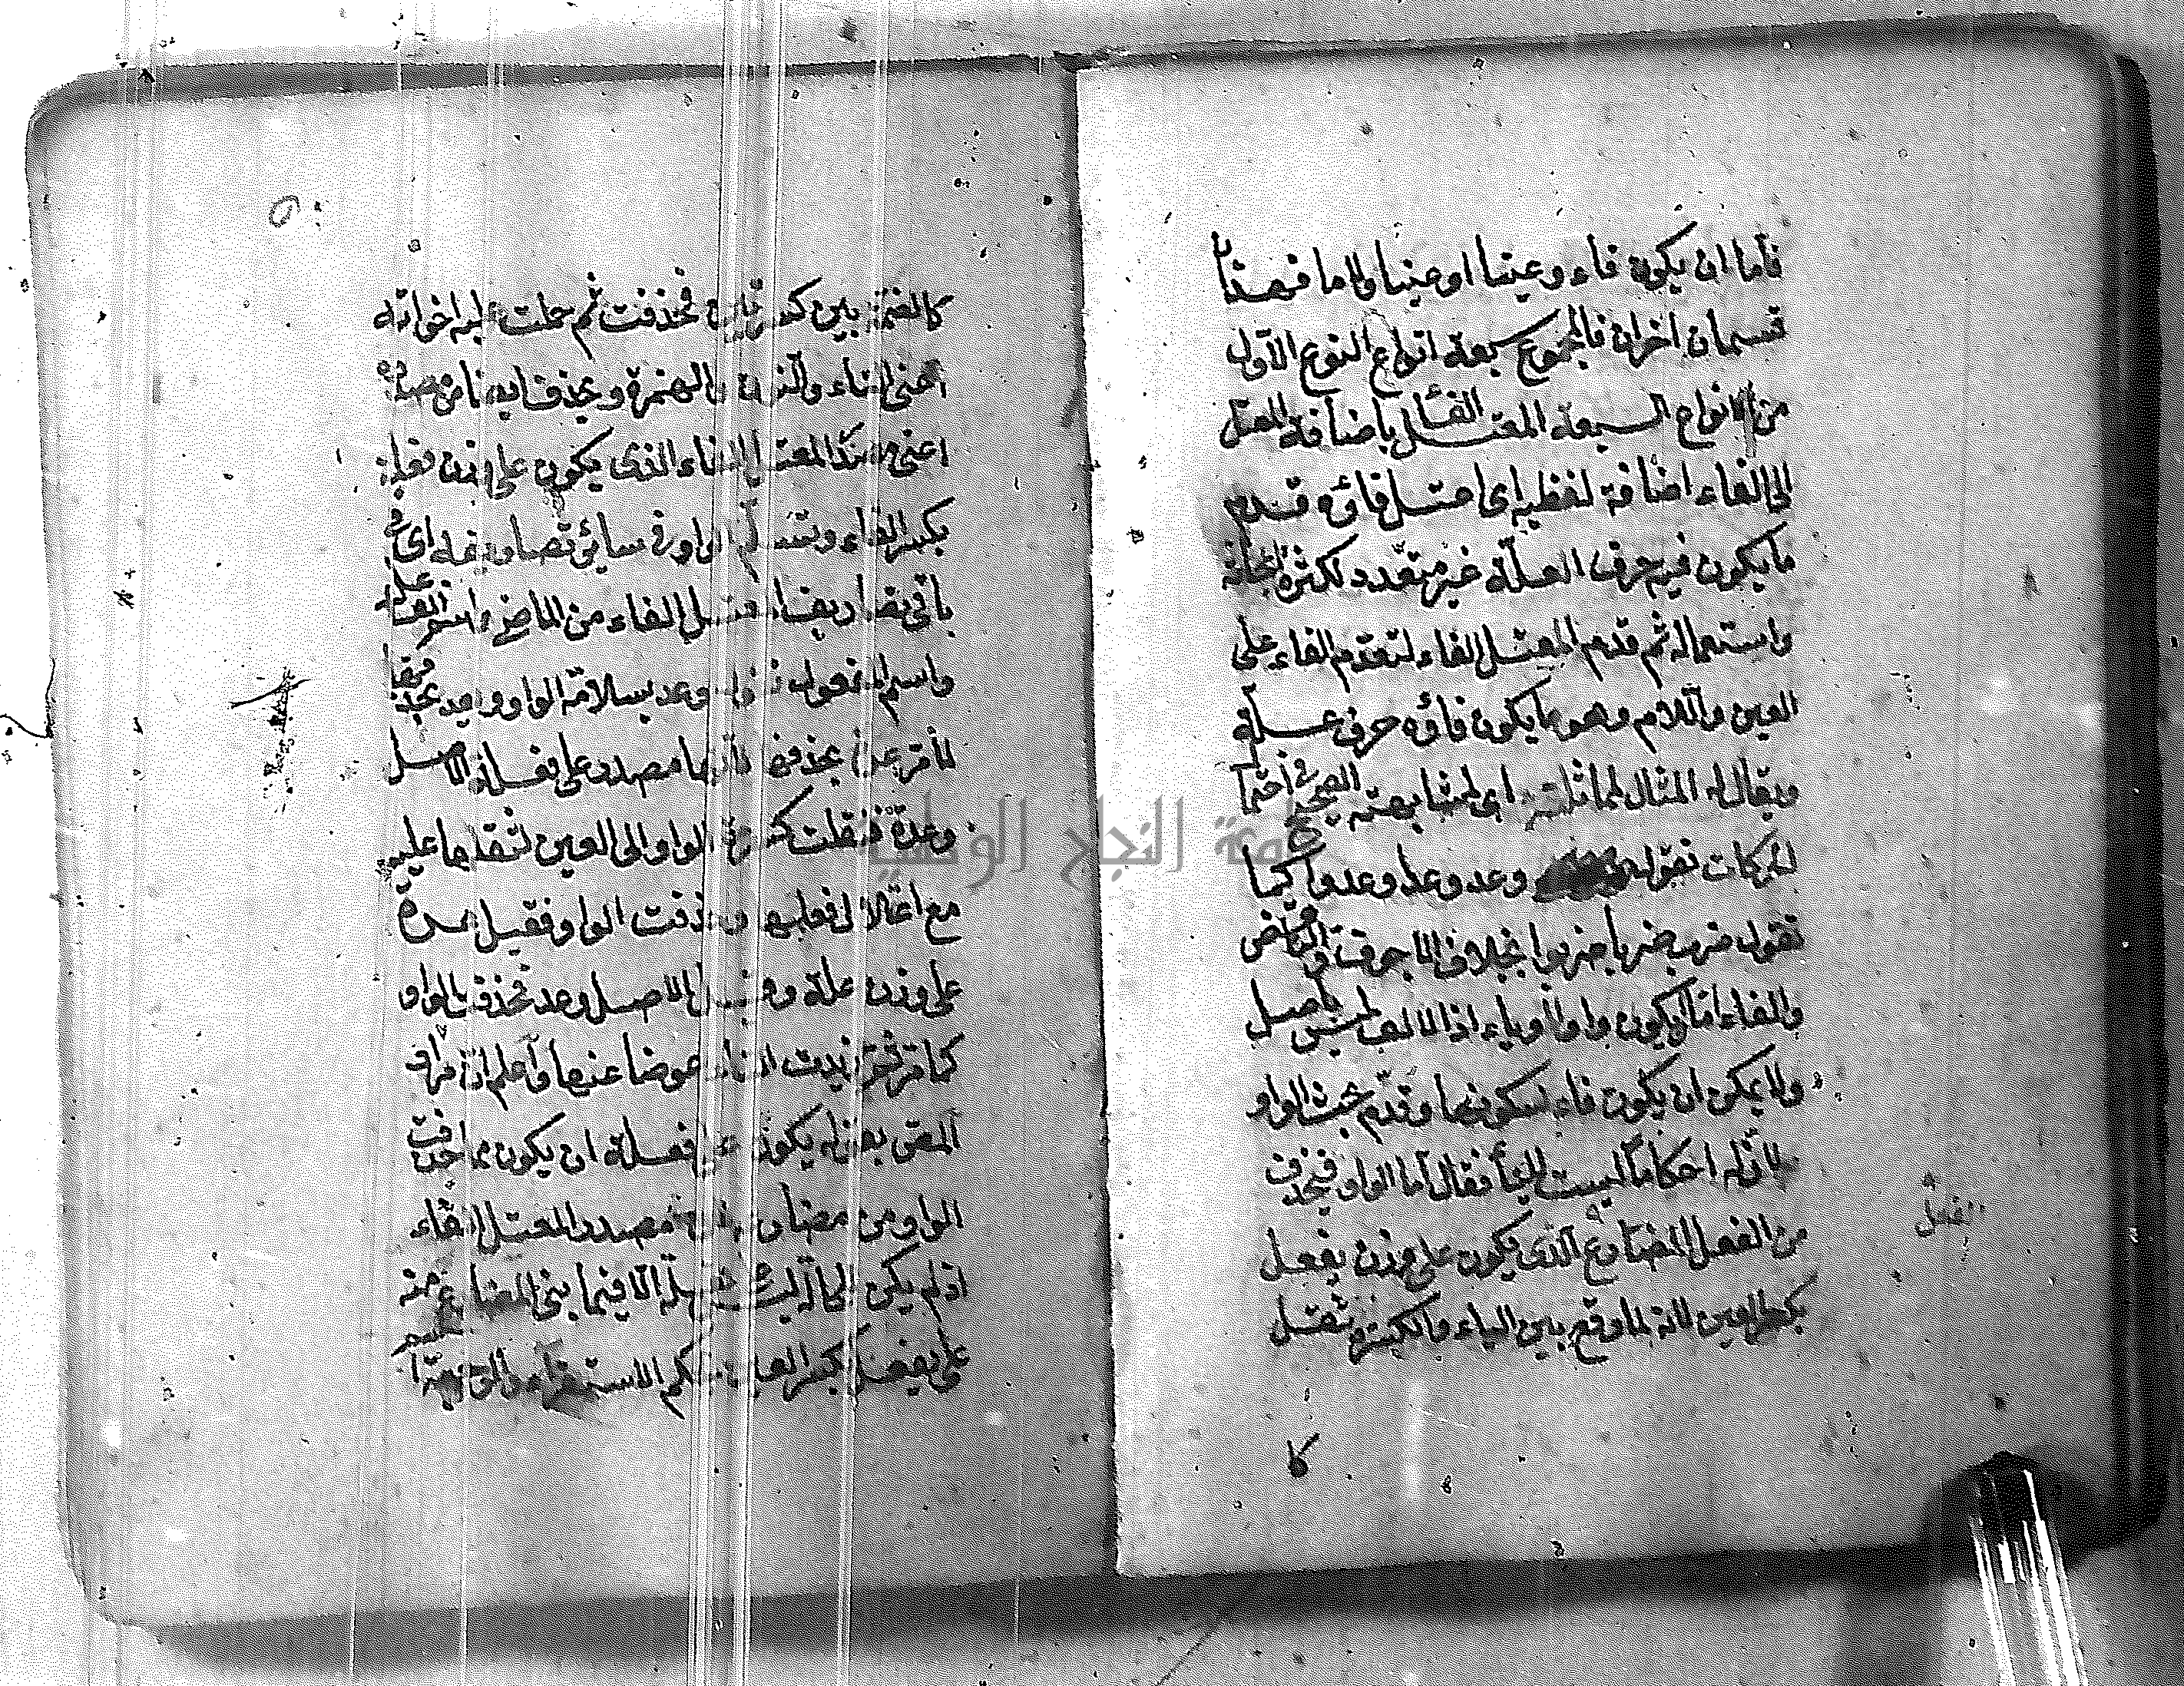 فأما ان يكون فاء وعينا او عينا ولاما فهذان
قسمان اخران فالمجموع سبعة انواع النوع الأول
من الانواع السبعة المعتل الفاء باضافة المعتل
الى الفاء اضافة لفظية اى اعتل فاؤه قدم
ما يكون فيه حرف العلّة غير متعدد لكثرة ابحاثه
واستعماله ثم قدم المعتل الفاء لتقدم الفاء على
العين واللام وهو ما يكون فاؤه حرف علّة
ويقال له المثال لمماثلته اى لمشابهته الصحيح فى احتمال
الحركات تقول وعد وعدا وعدوا كما
تقول ضرب ضربا ضربوا بخلاف الاجوف والناقص
والفاء امّا يكون واوا او ياء اذا الالف ليس باصل
ولا يمكن ان يكون فاء لسكونها وقدّم بحث الواو
لانّ له احكاماً ليست للياء فقال امّا الواو فتحذف
من الفعل المضارع الّذى يكون على وزن يفعل
بكسر العين لانه لما وقع بين الياء والكسرة ثقل
يفعل
كالضمّة بين كسرتين فحذفت ثم حملت عليه اخواته
اعنى التاء والنون والهمزة ويحذف ايضا من مصدره
اعنى مصدر المعتل الفاء الذى يكون على وزن فعلة
بكسر الفاء وتسلم الواو فى سائر تصاريفه اى فى
باقى تصاريف المعتل الفاء من الماضى واسم الفاعل
واسم المفعول تقول وعد بسلامة الواو ويعد بحذفها
لما مر عدة بحذفها لانها مصدر على فعلة الاصل
وعدة فنقلت كسرة الواو الى العين لثقلها عليه
مع اعتلال فعلها وحذفت الواو فقيل عدة
على وزن علة وقيل الاصل وعد فحذفت الواو
كما مر ثم زيدت التاء عوضا عنها واعلم انّ مراد
المص بقوله يكون على فعلة ان يكون مما حذفت
الواو من مضارعه مصدر المعتل الفاء
اذ لم يكن الحالة ليست فعلة الّا فيما بنى المضارع منه
على يفعل بكسر العين بحكم الاستقراء